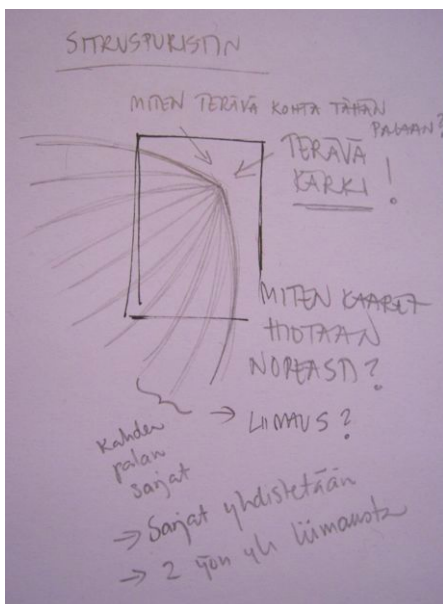 SITRUSPURISTIN
MITEN TERÄVÄ KOHTA TÄHÄN
PALAAN?
TERÄVÄ
KÄRKI!
MITEN KAARET
HIOTAAN
NOPEASTI?
→ LIIMAUS?
Kahden
palan
sarjat
→ Sarjat yhdistetään
→ 2 yön yli liimausta